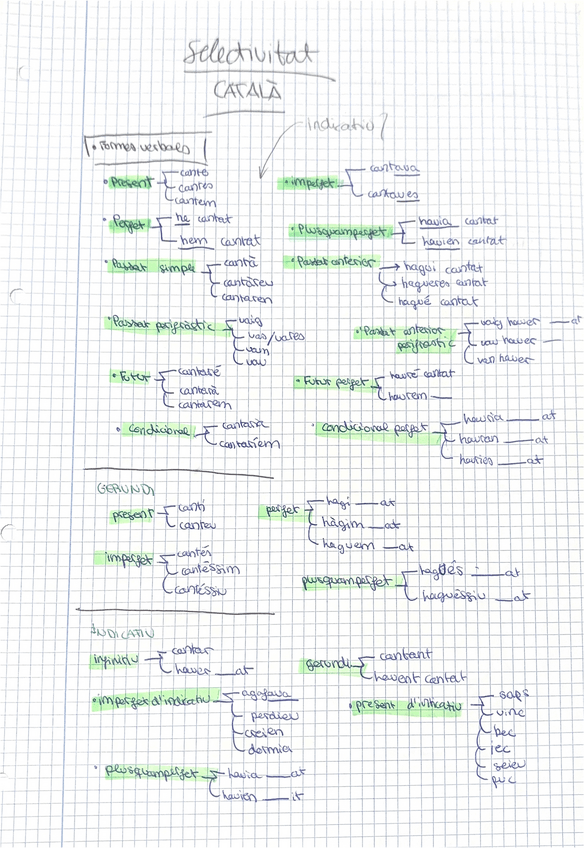 Selectivitat
CATALÀ
indicatiu?
• Formes verbals
• Present
cante
cantes
cantem
• imperfet
cantava
cantaves
• Perfet
he cantat
hem cantat
• Plusquamperfet
havia cantat
havien cantat
• Passat simple
cantà
cantàreu
cantaren
• Passat anterior
hagui cantat
hagueres cantat
hagué cantat
• Passat perifràstic
vaig
vas/vares
vam
vau
• Passat anterior perifrastic
vaig haver ___at
vau haver __
van haver
• Futur
cantaré
cantarà
cantarem
• Futur perfet
hauré cantat
haurem __
• condicional
cantaria
cantaríem
• condicional perfet
hauria ____at
haurien ____at
hauries ____at
GERUNDI
present
canti
canteu
perfet
hagi ___at
hàgim ___at
haguem ___at
imperfet
cantés
cantéssim
cantéssiu
plusquamperfet
hagués ___at
haguéssiu ___at
INDICATIU
infinitiu
cantar
haver __at
gerundi
cantant
havent cantat
• imperfet d'indicatiu
agafava
perdieu
creien
dormia
• present d'indicatiu
saps
vinc
bec
jec
seieu
puc
• plusquamperfet
havia ___at
havien ___it